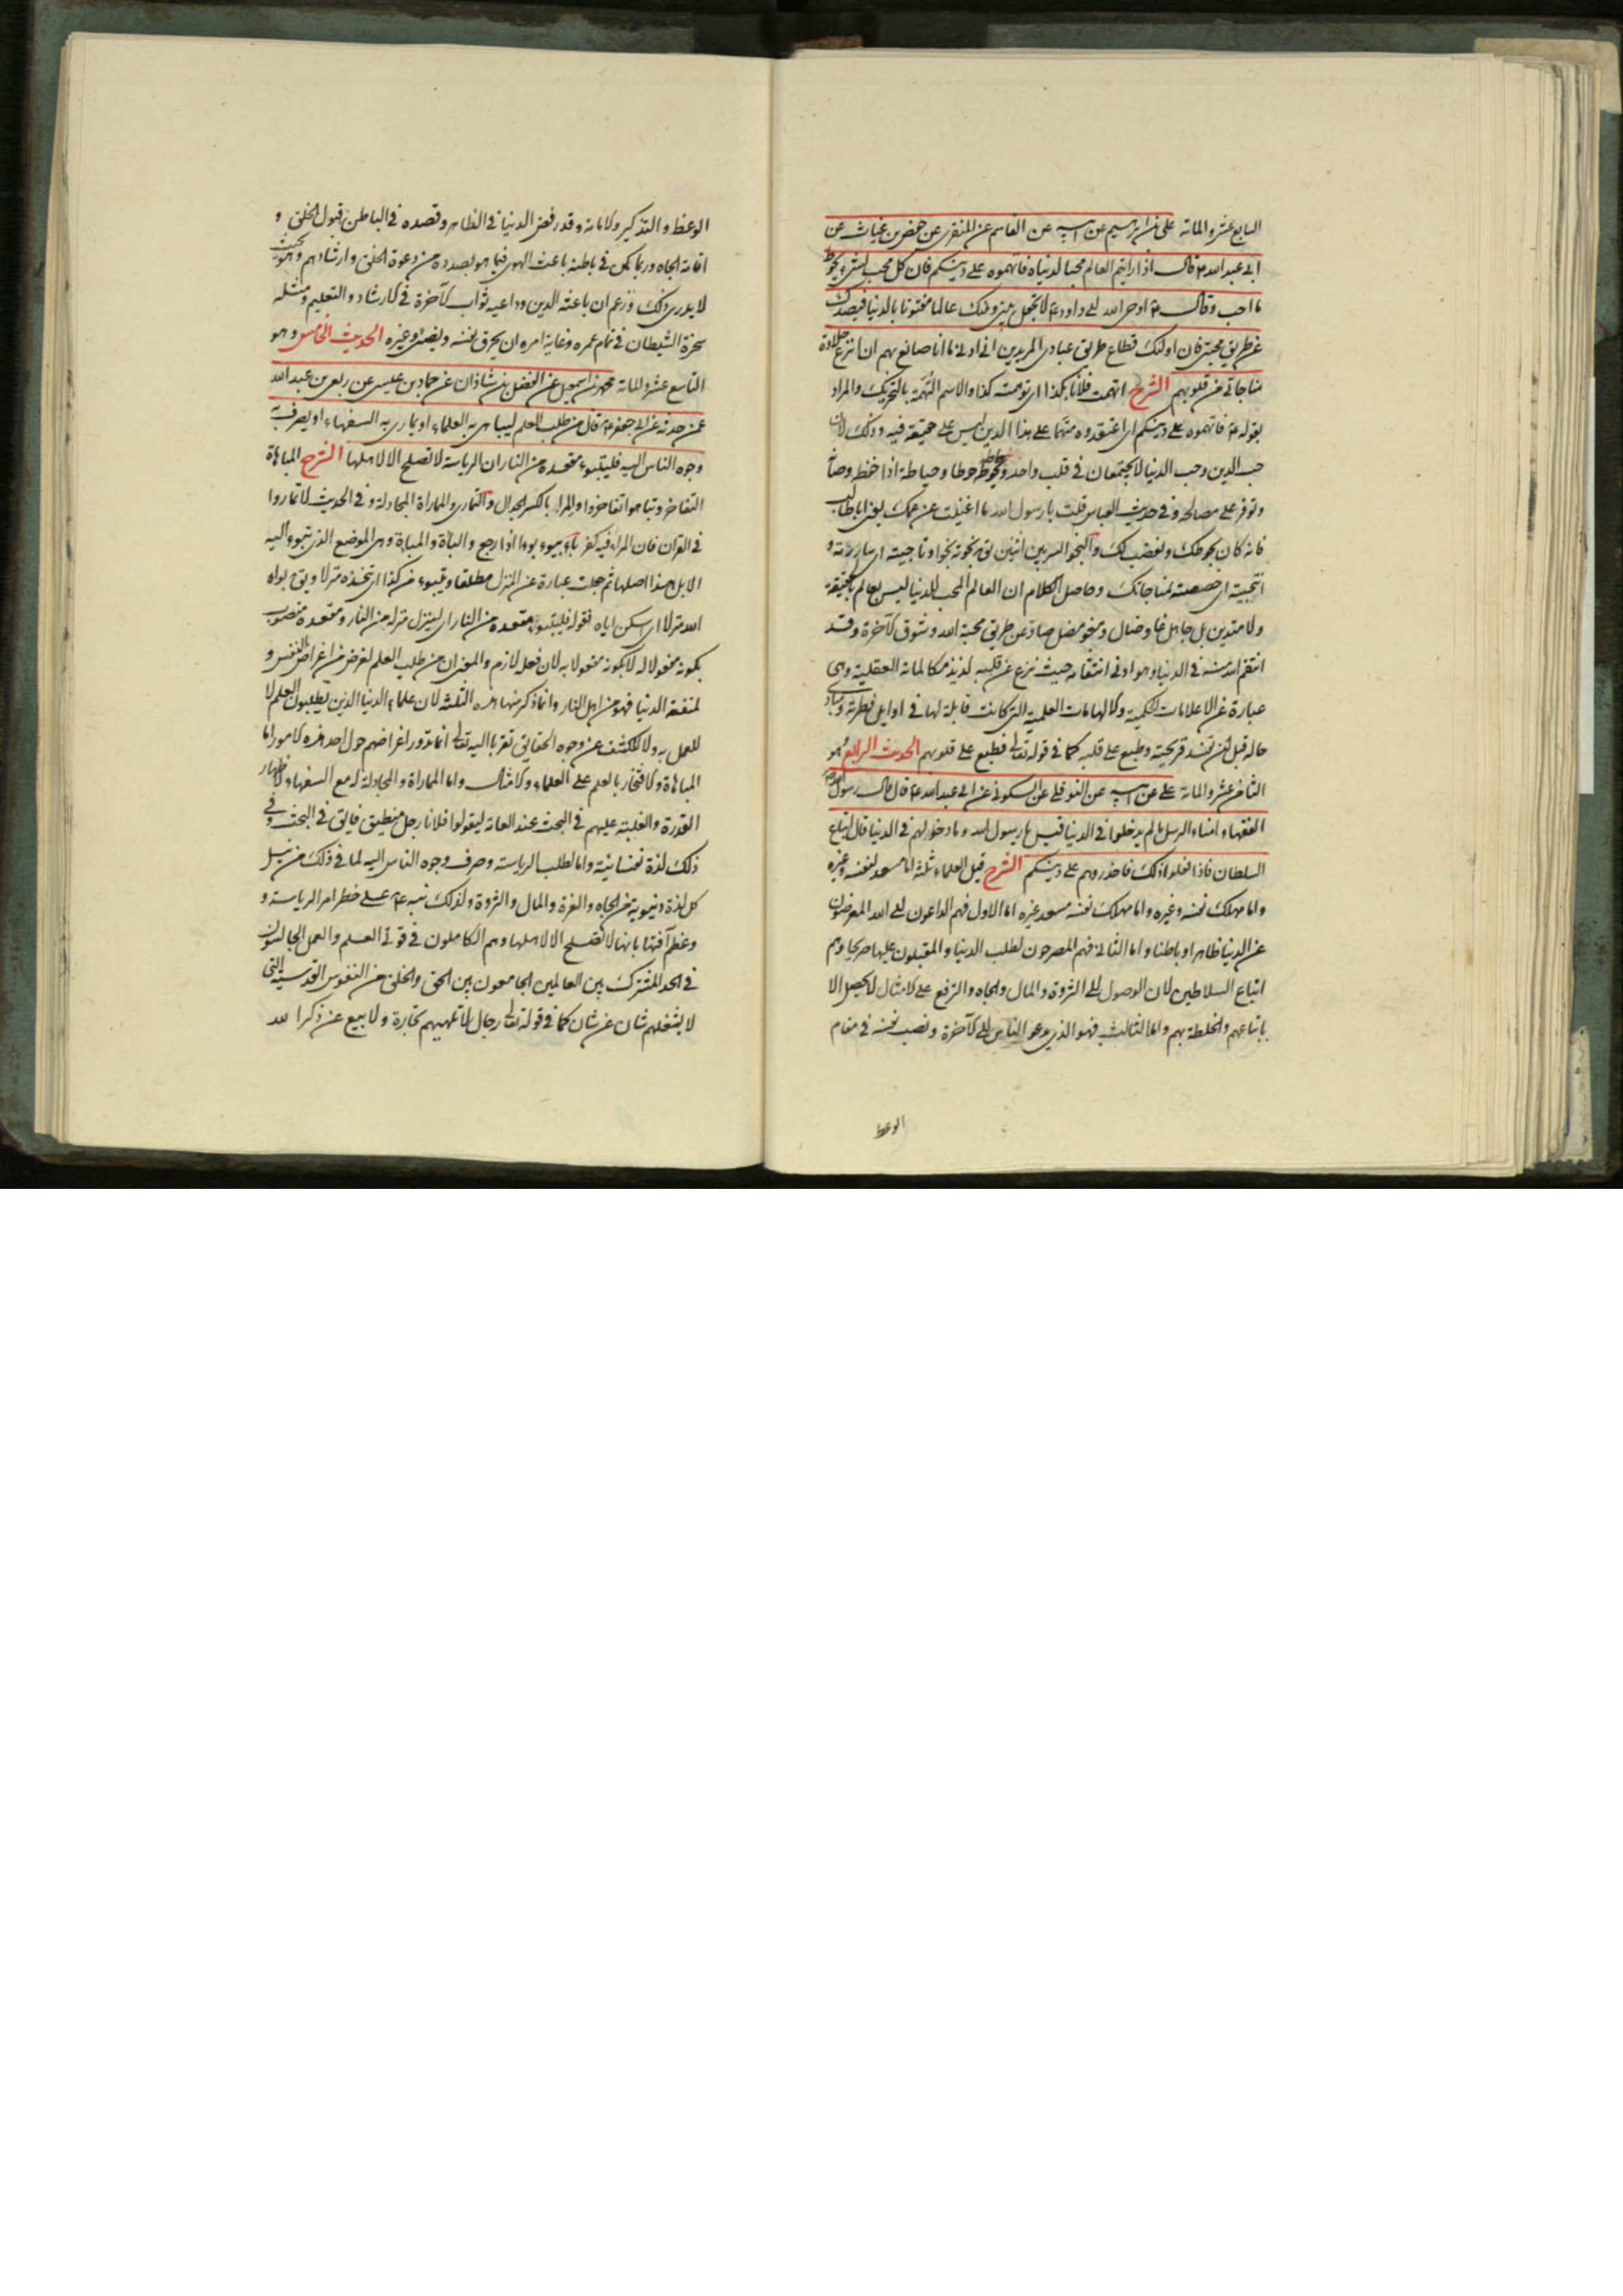 السابع عشر والمائة علي بن ابرهيم عن ابيه عن القاسم عن المنقري عن حفص بن غياث عن
ابي عبد الله ع قال اذا رايتم العالم محبا لدنياه فاتهموه على دينكم فان كل محب لشيء يحوط
ما احب وقال ع اوحى الله الى داود ع لا تجعل بيني وبينك عالما مفتونا بالدنيا فيصدك
عن طريق محبتي فان اولئك قطاع طريق عبادي المريدين ان ادنى ما انا صانع بهم ان انزع حلاوة
مناجاتي من قلوبهم الشرح اتهمت فلانا بكذا اي توهمت كذا والاسم التهمة بالتحريك والمراد
بقوله ع فاتهموه على دينكم اي اعتقدوه متهما على هذا الدين ليس على حقيقة فيه وذلك لان
حب الدين وحب الدنيا لا يجتمعان في قلب واحد ويحوط حوطا وحياطة اذا حفظ وصان
وتوفر على مصالحه وفي حديث العباس قلت يا رسول الله ما اغنيت عن عمك يعني ابا طالب
فانه كان يحوطك ويغضب لك والنجو السر بين اثنين يق نجوته نجوا وناجيته اي ساررته و
انتجيته اي خصصته لمناجاتك وحاصل الكلام ان العالم المحب للدنيا ليس بعالم بالحقيقة
ولا متدين بل جاهل غاو ضال ومغو مضل صاد عن طريق محبة الله وشوق الآخرة وقد
انتقم الله منه في الدنيا وهو ادنى انتقامه حيث نزع عن قلبه لذيذ مكالماته العقلية وهي
عبارة عن الاعلامات الحكمية والالهامات العلمية التي كانت قابلة لها في اوايل فطرته ومبادي
حاله قبل ان تفسد قريحته وطبع على قلبه كما في قوله تعالى فطبع على قلوبهم الحديث الرابع وهو
الثامن عشر والمائة علي عن ابيه عن النوفلي عن السكوني عن ابي عبد الله ع قال قال رسول الله ص
الفقهاء امناء الرسل ما لم يدخلوا في الدنيا قيل يا رسول الله وما دخولهم في الدنيا قال اتباع
السلطان فاذا فعلوا ذلك فاحذروهم على دينكم الشرح قيل العلماء ثلثة اما مسعد لنفسه وغيره
واما مهلك نفسه وغيره واما مهلك نفسه مسعد غيره اما الاول فهم الداعون الى الله المعرضون
عن الدنيا ظاهرا وباطنا واما الثاني فهم المصرحون لطلب الدنيا والمقبلون عليها صريحا وهم
اتباع السلاطين لان الوصول الى الثروة والمال والجاه والترفع على الامثال لا يحصل الا
باتباعهم والخلطة بهم واما الثالث فهو الذي يدعو الناس الى الآخرة ونصب نفسه في مقام
الوعظ
الوعظ والتذكير والامامة وقد رفض الدنيا في الظاهر وقصده في الباطن قبول الخلق و
اقامة الجاه وربما يكمن في باطنه باعث الهوى فيما هو بصدده من دعوة الخلق وارشادهم وهو بحيث
لا يدري ذلك وزعم ان باعثه الدين وداعيه ثواب الآخرة في الارشاد والتعليم ومثله
سخرة الشيطان في تمام عمره وغاية امره ان يحرق نفسه ويضيء غيره الحديث الخامس وهو
التاسع عشر والمائة محمد بن اسمعيل عن الفضل بن شاذان عن حماد بن عيسى عن ربعي بن عبد الله
عمن حدثه عن ابي جعفر ع قال من طلب العلم ليباهي به العلماء او يماري به السفهاء او يصرف به
وجوه الناس اليه فليتبوء مقعده من النار ان الرياسة لا تصلح الا لاهلها الشرح المباهاة
التفاخر وتباهوا تفاخروا والمراء بالكسر الجدال والتماري والمماراة المجادلة وفي الحديث لا تماروا
في القران فان المراء فيه كفر باء يبوء بوءا اذا رجع والباة والمباة وهي الموضع الذي تبوء اليه
الابل هذا اصلها ثم جعلت عبارة عن المنزل مطلقا ويتبوء من كذا اي تتخذه منزلا ويق بواه
الله منزلا اي اسكنه اياه فقوله فليتبوء مقعده من النار اي لينزل منزله من النار ومقعده منصوب
بكونه مفعولا له لا بكونه مفعولا به لان فعله لازم والمعنى ان من طلب العلم لغرض من اغراض النفس و
لمنفعة الدنيا فهو من اهل النار وانما ذكر منها هذه الثلثة لان علماء الدنيا الذين يطلبون العلم لا
للعمل به ولا للكشف عن وجوه الحقايق تقربا اليه تعالى انما تدور اغراضهم حول احد هذه الامور اما
المباهاة والافتخار بالعلم على العلماء والامثال واما المماراة والمجادلة له مع السفهاء لاظهار
القدرة والغلبة عليهم في البحث عند العامة ليقولوا فلانا رجل منطيق فايق في البحث وفي
ذلك لذة نفسانية واما لطلب الرياسة وصرف وجوه الناس اليه لما في ذلك من نيل
كل لذة دنيوية من الجاه والعزة والمال والثروة ولذلك نبه ع على خطر امر الرياسة و
وعظم آفتها بانها لا تصلح الا لاهلها وهم الكاملون في قوتي العلم والعمل الجالسون
في الحد المشترك بين العالمين الجامعون بين الحق والخلق من النفوس القدسية التي
لا يشغلهم شان عن شان كما في قوله تعالى رجال لا تلهيهم تجارة ولا بيع عن ذكر الله